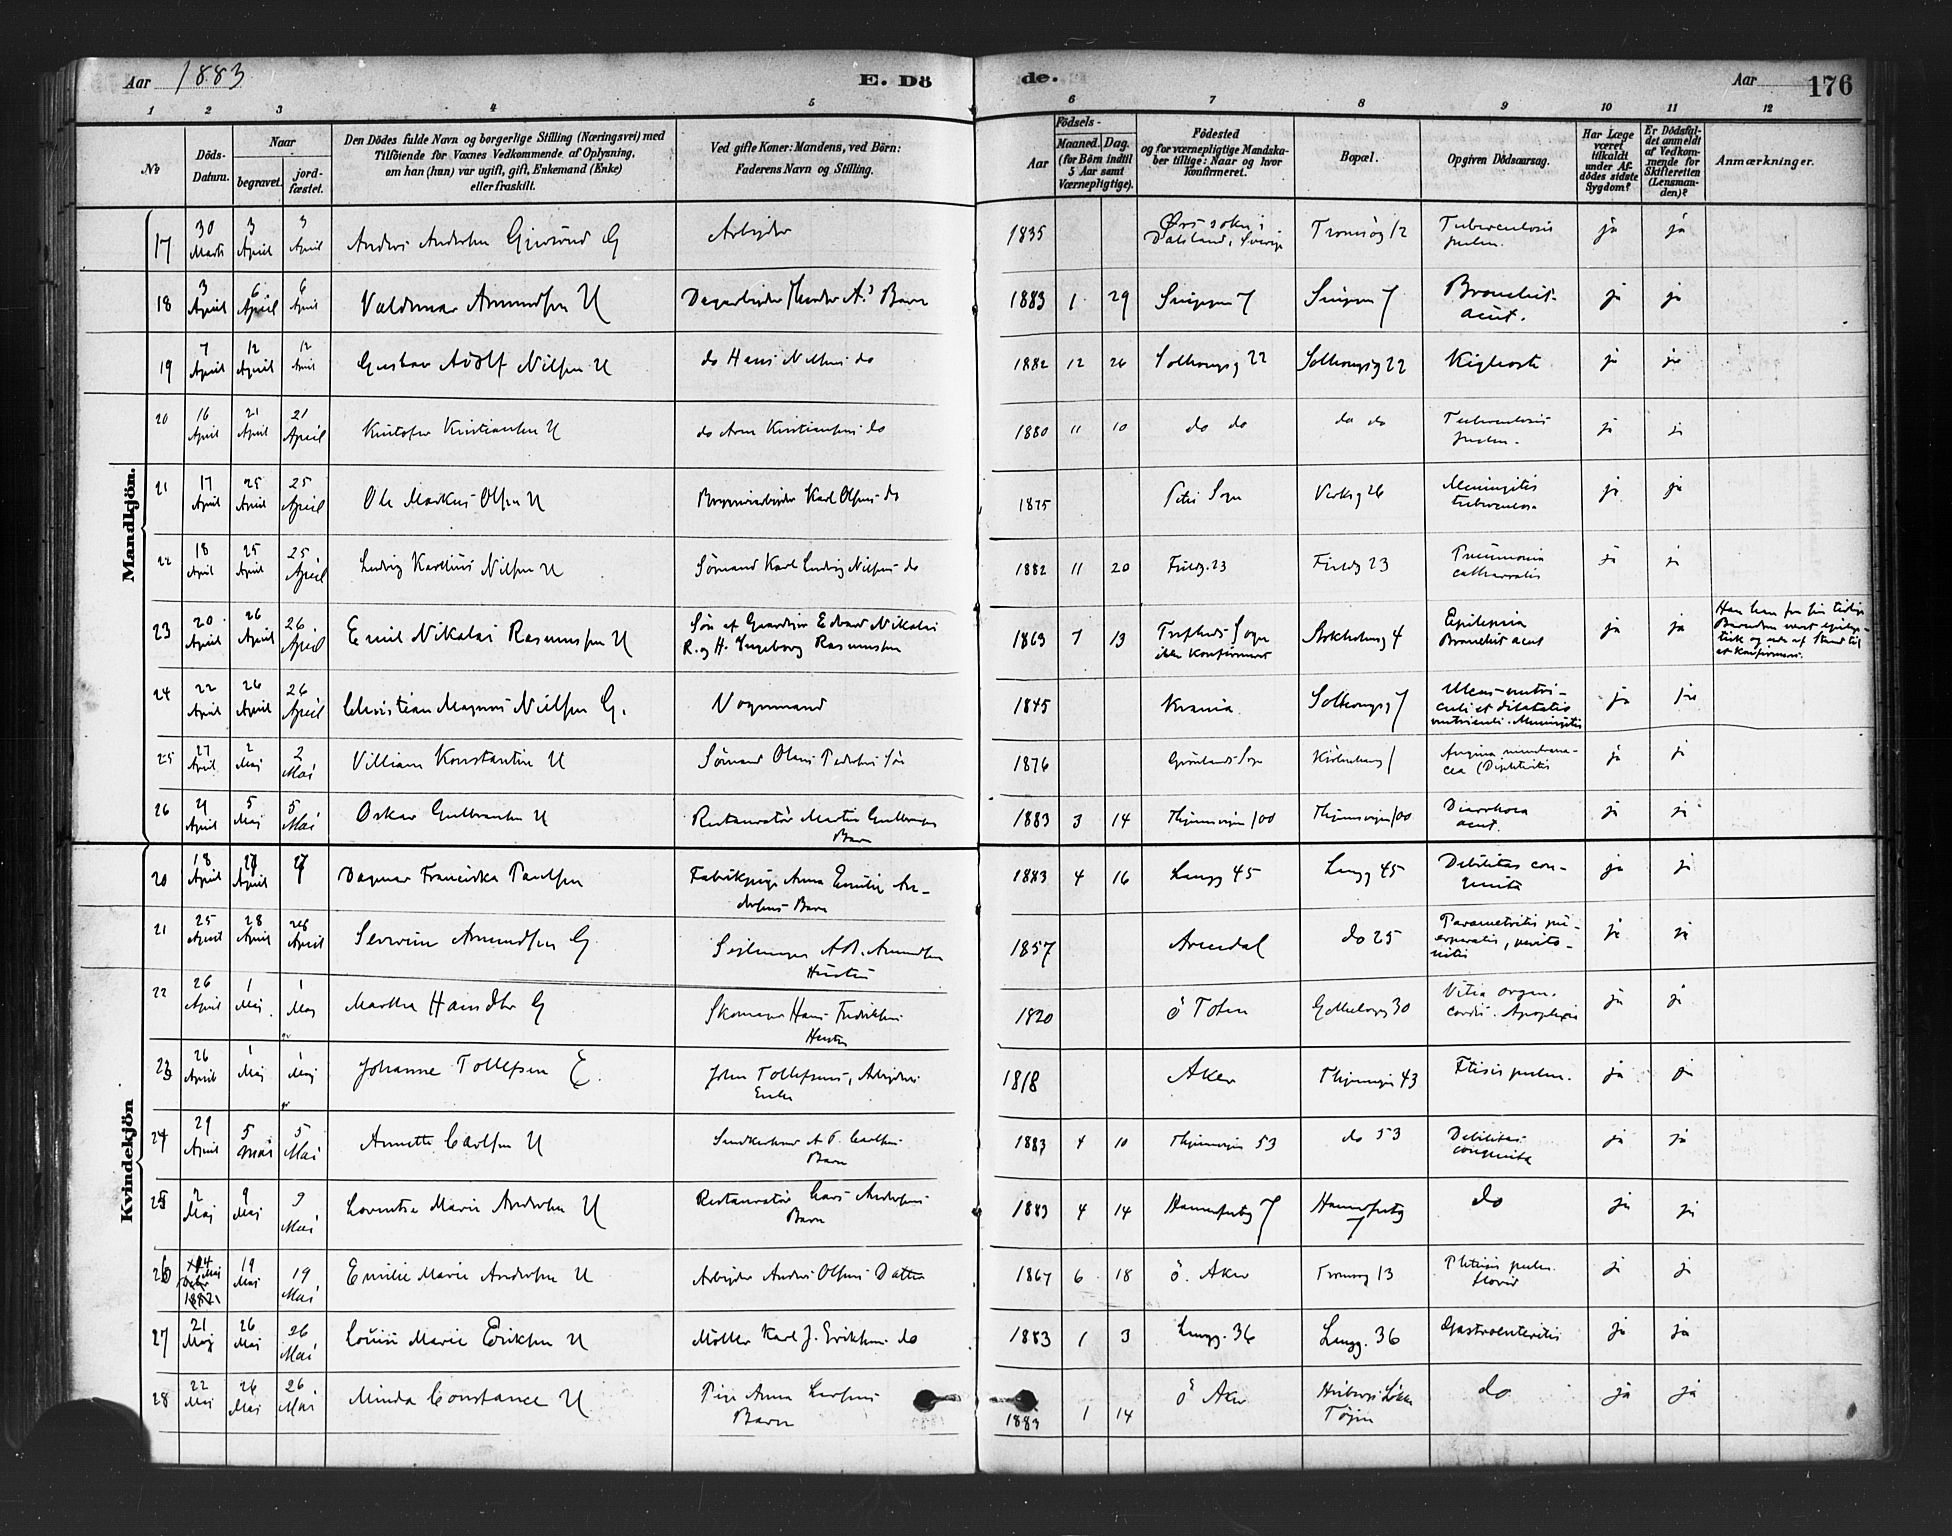 Aar 1883
E. Dö
de.
Aar
176
1 2 3 4 5 6 7 8 9 10 11 12
No
Döds-Datum.
Naar
begravet.
jord-fæstet.
Den Dödes fulde Navn og borgerlige Stilling (Næringsvei) med
Tilföiende for Voxnes Vedkommende af Oplysning,
om han (hun) var ugift, gift, Enkemand (Enke)
eller fraskilt.
Ved gifte Koner: Mandens, ved Börn:
Faderens Navn og Stilling.
Födsels-
Aar
Maaned.
Dag.
(for Börn indtil
5 Aar samt
Værnepligtige).
Födested
og for værnepligtige Mandska-
ber tillige: Naar og hvor
Konfirmeret.
Bopæl.
Opgiven Dödsaarsag.
Har Læge
været
tilkaldt
under Af-
dödes sidste
Sygdom?
Er Dödsfal-
det anmeldt
af Vedkom-
mende for
Skifteretten
(Lensman-
den)?
Anmærkninger.
Mandkjön.
17 30 Marts 3 April 3 April Anders Andersen G Arbejder 1835 Dalsland, Sverige Tromsøg 12 Tuberculosis pulm. ja ja
18 3 April 6 April 6 April Valdemar Amundsen U Barn 1883 1 29 7 7 Bronchit. acut. ja ja
19 7 April 12 April 12 April Gustav Adolf Nilsen U do Hans Nilsens do 1882 12 26 22 22 Kighoste ja ja
20 16 April 21 April 21 April Kristofer Kristiansen U do Kristiansens do 1880 11 10 do do do do Tuberculosis pulm. ja ja
21 17 April 25 April 25 April Ole Markus Olsen U Karl Olsens do 1875 Petri Sogn Verksg 26 Meningitis tuberculosa ja ja
22 18 April 25 April 25 April Ludvig Nilsen U Sømand Karl Ludvig Nilsens do 1882 11 20 23 23 Pneumonia catharralis ja ja
23 20 April 26 April 26 April Emil Nikolai Rasmussen U Søn af Edvard Nikolai
R. og H. Ingeborg Rasmussen 1863 7 13 Sogn
ikke Konfirmeret 4 Epilepsia
Bronchit acut ja ja Han har fra sin tidlige
Barndom været
og ude af Stand til
at Konfirmeres.
24 22 April 26 April 26 April Christian Magnus Nielsen G. Vognmand 1845 Krania 7 Meningitis ja ja
25 27 April 2 Maj 2 Mai Villiam Konstantin U Sømand Olaus Pedersens Søn 1876 Grønlands Sogn 1 Angina membrana-
cea (Diphteritis ja ja
26 April 5 Maj 5 Mai Oskar Gulbransen U Restauratør Martin
Barn 1883 3 14 100 100 Diarrhoea
acut. ja ja
Kvindekjön
20 18 April April Dagmar Franciska Paulsen Fabrikpige Anna Emilie An-
dersens Barn 1883 4 16 45 45 Debilitas con-
genita ja ja
21 25 April 28 April April Severine Amundsen G Amundsen
Hustru 1857 Arendal do 25 Parametritis pu-
erperalis, perito-
nitis ja ja
22 26 April 1 Maj 1 Maj Martha Hansdtr G Skomager Hans Fredriksens
Hustru 1820 ö Toten 30 Vitia organ.
cordis. Apoplexia ja ja
23 26 April 1 Maj 1 Maj Johanne Tollefsen E. John Tollefsens, Arbejders
Enke 1818 Aker 43 Ftisis pulm. ja ja
24 29 April 5 Mai 5 Mai Annette Carlsen U Carlsens
Barn 1883 4 10 53 do 53 Debilitas
congenita ja ja
25 2 Maj 9 Maj 9 Mai Lorentse Marie Andersen U Restauratør Lars Andersens
Barn 1883 4 14 7 7 do ja ja
26 14 Maj
1882 19 Maj 19 Mai Emilie Marie Andersen U Arbejder Anders Olsens Datter 1867 6 18 ö. Aker Tromsøg 13 Phtisis pulm.
florid ja ja
27 21 Maj 26 Maj 26 Mai Louise Marie Eriksen U Møller Karl J. Eriksens do 1883 1 3 36 36 Gastroenteritis ja ja
28 22 Maj 26 Maj 26 Mai Minda Constance U Pige Anna Larsens
Barn 1883 1 14 ö Aker Løkke
Tøyen do ja ja